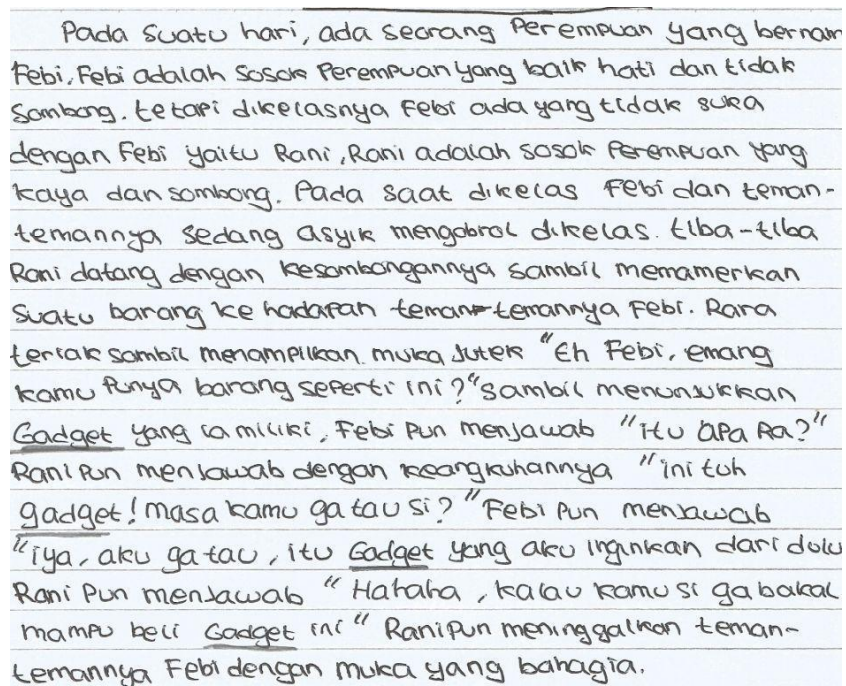 Pada suatu hari, ada seorang Perempuan yang bernam
Febi, Febi adalah sosok Perempuan yang baik hati dan tidak
Sombong. tetapi dikelasnya Febi ada yang tidak suka
dengan Febi yaitu Rani, Rani adalah sosok Perempuan yang
kaya dan sombong. Pada saat dikelas Febi dan teman-
temannya sedang asyik mengobrol dikelas. tiba-tiba
Rani datang dengan kesombongannya sambil memamerkan
Suatu barang ke hadapan teman-temannya Febi. Rara
teriak sambil menampilkan muka Jutek "Eh Febi, emang
kamu Punya barang seperti ini?" Sambil menunjukkan
Gadget yang ia miliki, Febi Pun menjawab "itu apa Ra?"
Rani Pun menjawab dengan keangkuhannya "ini tuh
gadget! masa kamu ga tau si?" Febi Pun menjawab
"iya, aku ga tau, itu Gadget yang aku inginkan dari dulu
Rani Pun menjawab "Hahaha, kalau kamu si ga bakal
mampu beli Gadget ini" Rani Pun meninggalkan teman-
temannya Febi dengan muka yang bahagia.